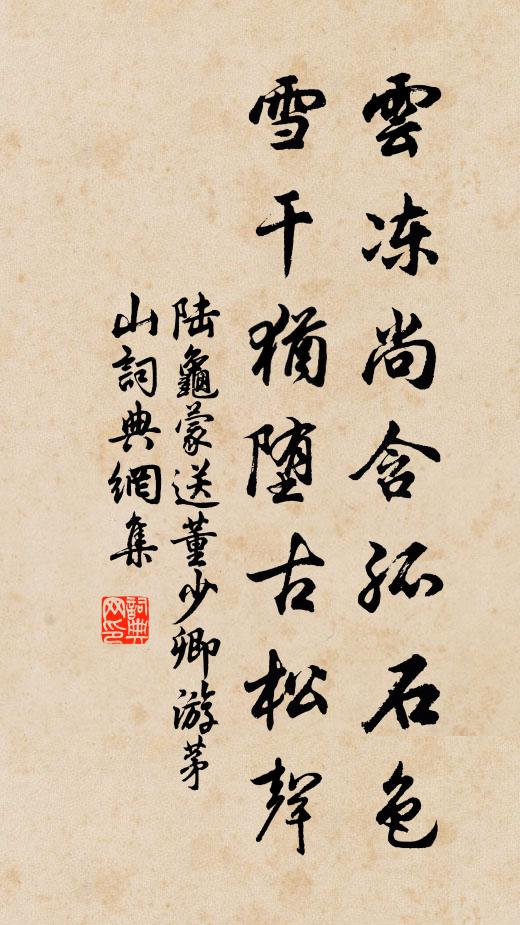 雲冻尚含孤石色
雪干猶堕古松聲
陆龜蒙送董少卿游茅
山詞典網集
詞典
网印